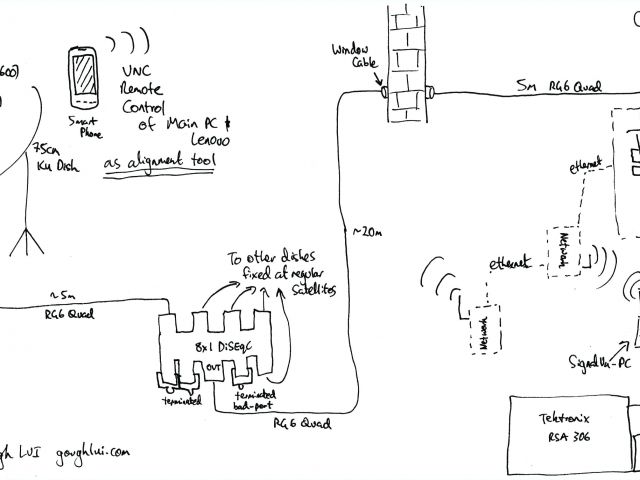 600)
Smart
Phone
VNC
Remote
Control
of Main PC &
Lenovo
as alignment tool
75cm
Ku Dish
Window
Cable
5m RG6 Quad
ethernet
Network
ethernet
Network
SignalVu-PC
~20m
To other dishes
fixed at regular
satellites
~5m
RG6 Quad
8x1 DiSEqC
OUT
terminated
terminated
bad-port
RG6 Quad
Tektronix
RSA 306
gh LUI goughlui.com